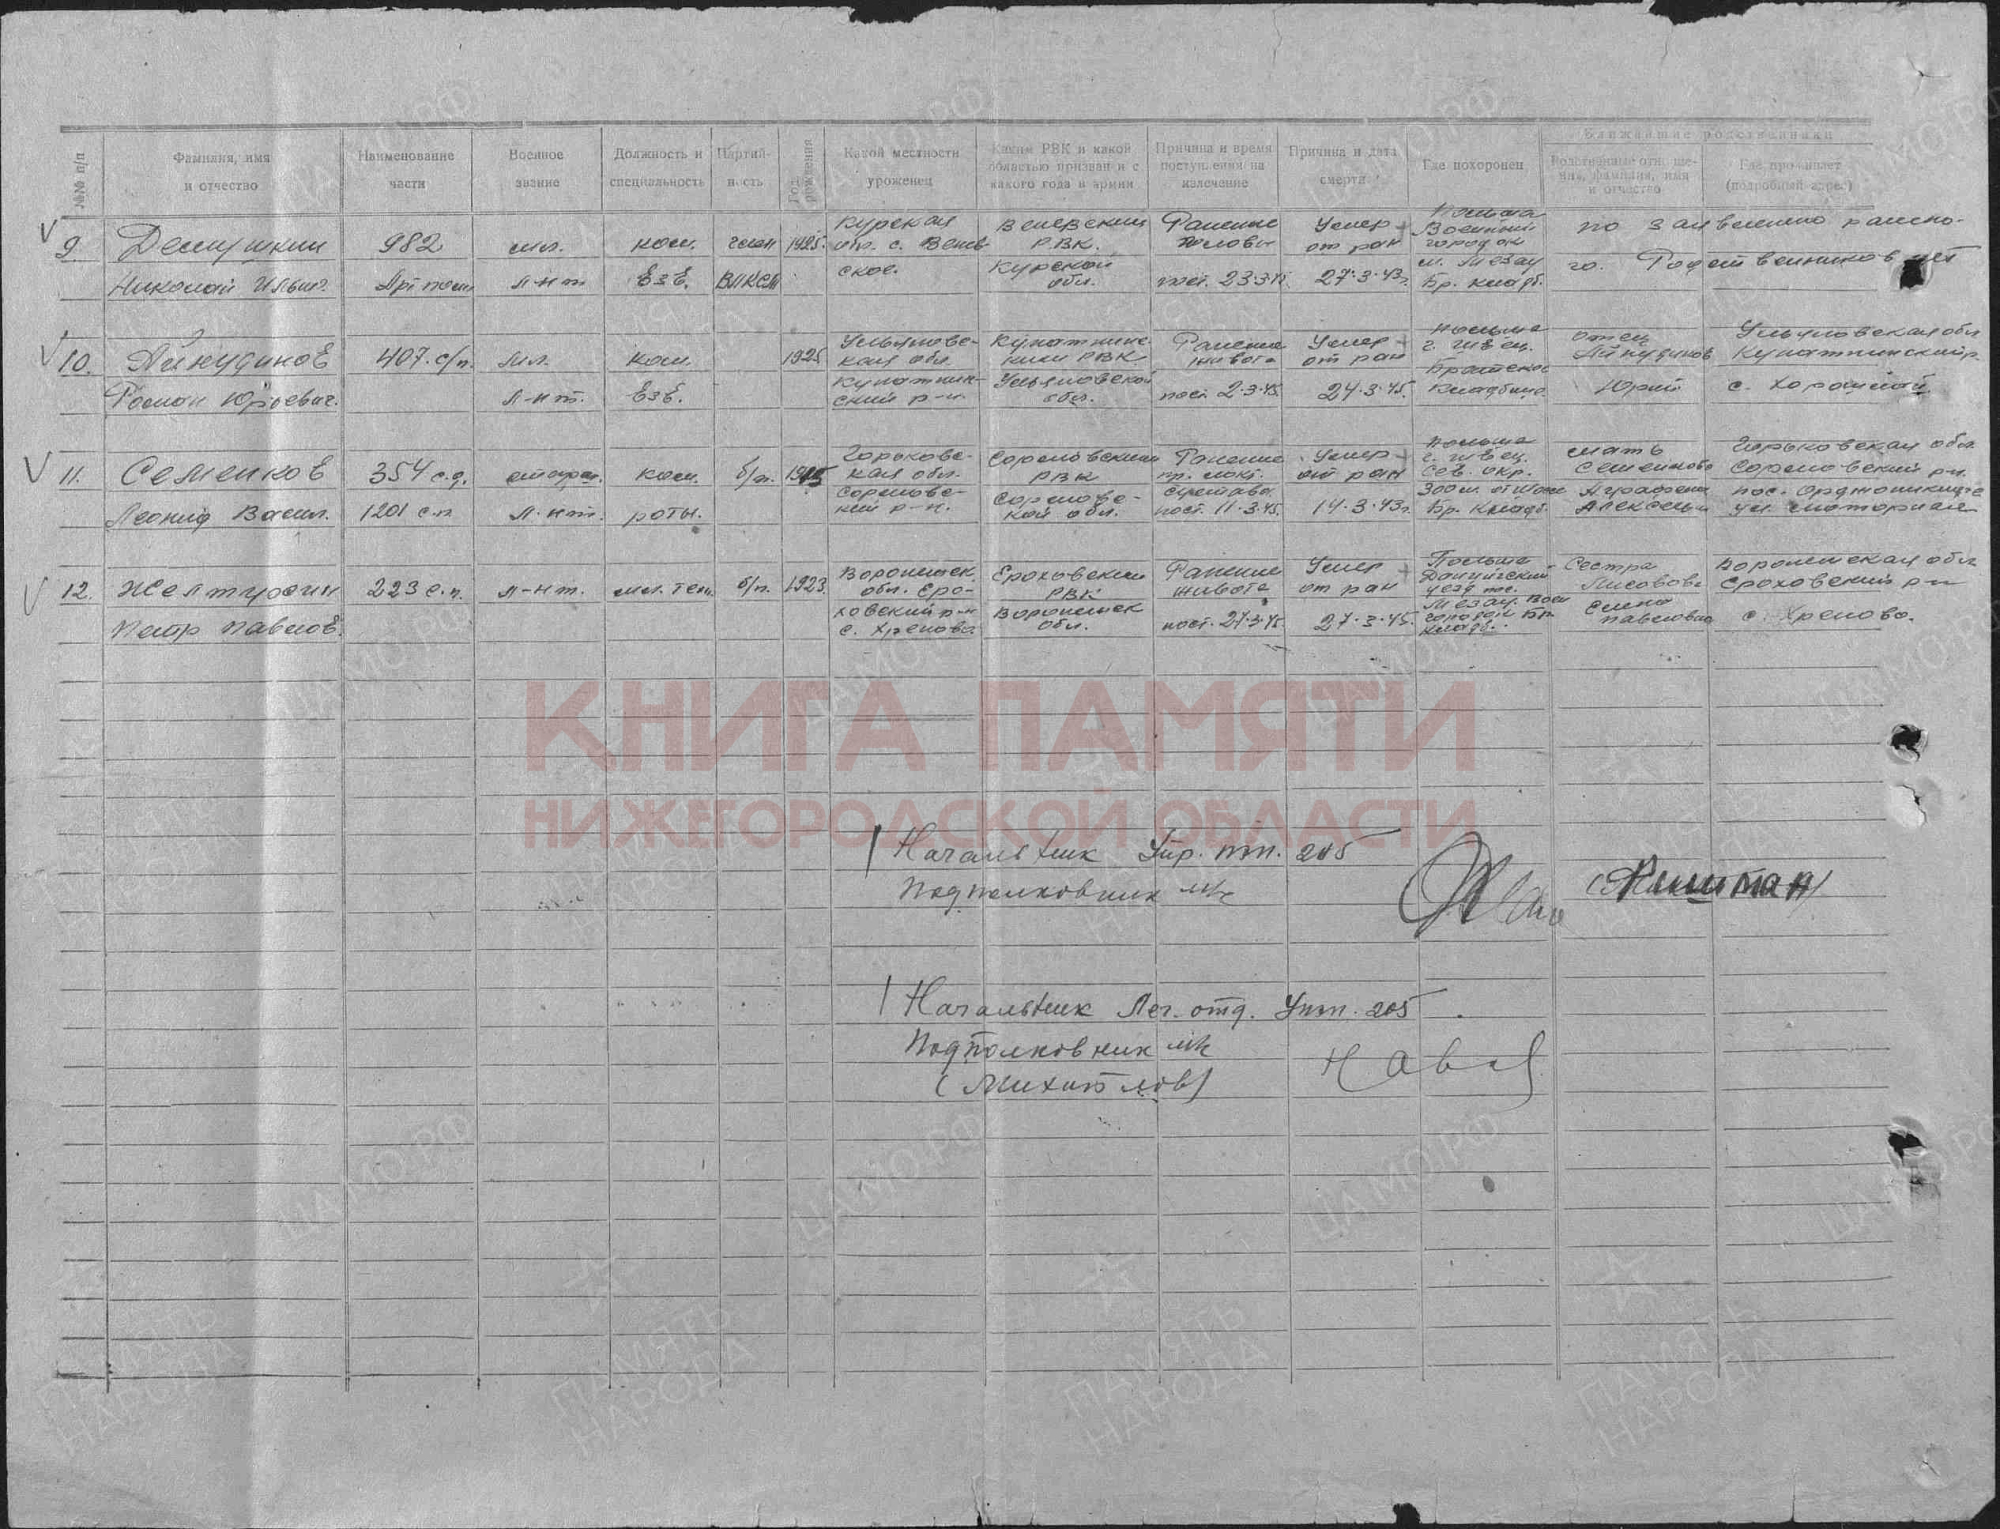 №№ п/п
Фамилия, имя и отчество
Наименование части
Военное звание
Должность и специальность
Партийность
Год рождения
Какой местности уроженец
Каким РВК и какой областью призван и с какого года в армии
Причина и время поступления на излечение
Причина и дата смерти
Где похоронен
Ближайшие родственники
Родственные отношения, фамилия, имя и отчество
Где проживает (подробный адрес)
9. Демушкин
Николай Ильич.
982
Арт полк
мл.
л-нт
ком.
взв.
член
ВЛКСМ
1925.
Курская
обл. с.
ское.
РВК.
Курской
обл.
Ранение
головы
пост. 23.3.45.
Умер
от ран
Польша
Военный
городок
Бр. кладб.
по заявлению ранено-
го. Родственников нет
10. Айнудинов
Роман Юрьевич.
407. с/п.
мл.
л-нт.
ком.
взв.
1925
Ульяновс-
кая обл.
ский р-н.
РВК
Ульяновской
обл.
Ранение
живота
пост. 2.3.45.
Умер
от ран
24.3.45.
Польша
г. Швец.
Братское
кладбище
отец
Айнудинов
Юрий
Ульяновская обл
11. Семенков
Леонид Васил.
354 с.д.
1201 с.п.
старш.
л-нт.
ком.
роты.
б/п.
1915
Горьковс-
кая обл.
Сормовс-
кий р-н.
Сормовский
РВК
Сормовс-
кой обл.
Ранение
пр. локт.
сустава.
пост. 11.3.45.
Умер
от ран
Польша
г. Швец.
Сев. окр.
Бр. кладб.
мать
Семенкова
Аграфена
Алексеев
Горьковская обл.
Сормовский р-н.
пос. Орджоникидзе
12. Желтухин
Петр Павлов.
223 с.п.
л-нт.
б/п.
1923.
Воронежск.
обл.
с. Хреново.
РВК
Воронежск
обл.
Ранение
живота
пост. 27.3.45
Умер
от ран
27.3.45.
Польша
Данцигский
уезд
кладб.
Сестра
Елена
Павловна
Воронежская обл
с. Хреново.
КНИГА ПАМЯТИ
НИЖЕГОРОДСКОЙ ОБЛАСТИ
Начальник Упр. пэп. 205
Подполковник м/с
Начальник Леч. отд. Упэп. 205
Подполковник м/с
(Михайлов)
ЦАМО.РФ
ПАМЯТЬ
НАРОДА